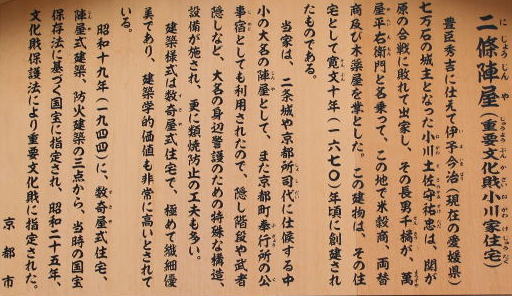 二條陣屋（重要文化財小川家住宅）
豊臣秀吉に仕えて伊予今治（現在の愛媛県）
七万石の城主となった小川土佐守祐忠は、関が
原の合戦に敗れて出家し、その長男千橘が、萬
屋平右衛門と名乗って、この地で米穀商、両替
商及び木薬屋を業とした。この建物は、その住
宅として寛文十年（一六七〇）年頃に創建され
たものである。
当家は、二条城や京都所司代に仕候する中
小の大名の陣屋として、また京都町奉行所の公
事宿としても利用されたので、隠し階段や武者
隠しなど、大名の身辺警護のための特殊な構造、
設備が施され、更に類焼防止の工夫も多い。
建築様式は数奇屋式住宅で、極めて繊細優
美であり、建築学的価値も非常に高いとされて
いる。
昭和十九年（一九四四）に、数奇屋式住宅、
陣屋式建築、防火建築の三点から、当時の国宝
保存法に基づく国宝に指定され、昭和二十五年、
文化財保護法により重要文化財に指定された。
京都市